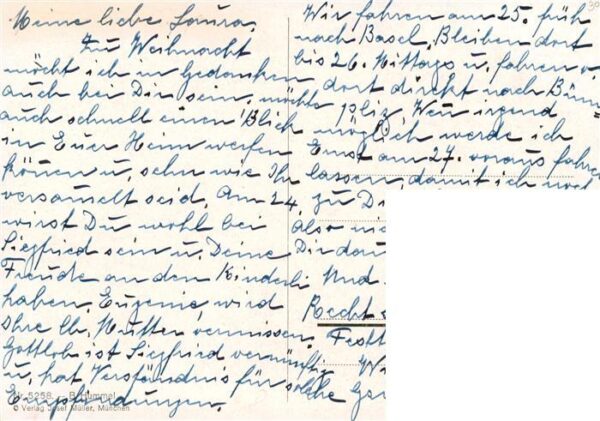 Meine liebe Laura.
Zu Weihnacht
möcht ich in Gedanken
auch bei Dir sein, möchte
auch schnell einen Blick
in Euer Heim werfen
können u. sehn wie Ihr
versamelt seid. Am 24.
wirst Du wohl bei
Siegfried sein u. Deine
Freude an den Kinderli
haben. Eugenie, wird
ihre lb. Mutter vermissen.
Gottlob ist Siegfried vernünftig
u. hat Verständnis für solche
Empfindungen.
Nr. 5258 — B. Hummel
© Verlag Josef Müller, München
Wir fahren am 25. früh
nach Basel, Bleiben dort
bis 26. Mittags u. fahren v.
dort direkt nach Bünn
pliz. Wen irgend
möglich werde ich
Ernst am 27. voraus fahre
lassen, damit ich noch
zu Di
also ni
Dir dau
Und
Recht
Festt
Wi